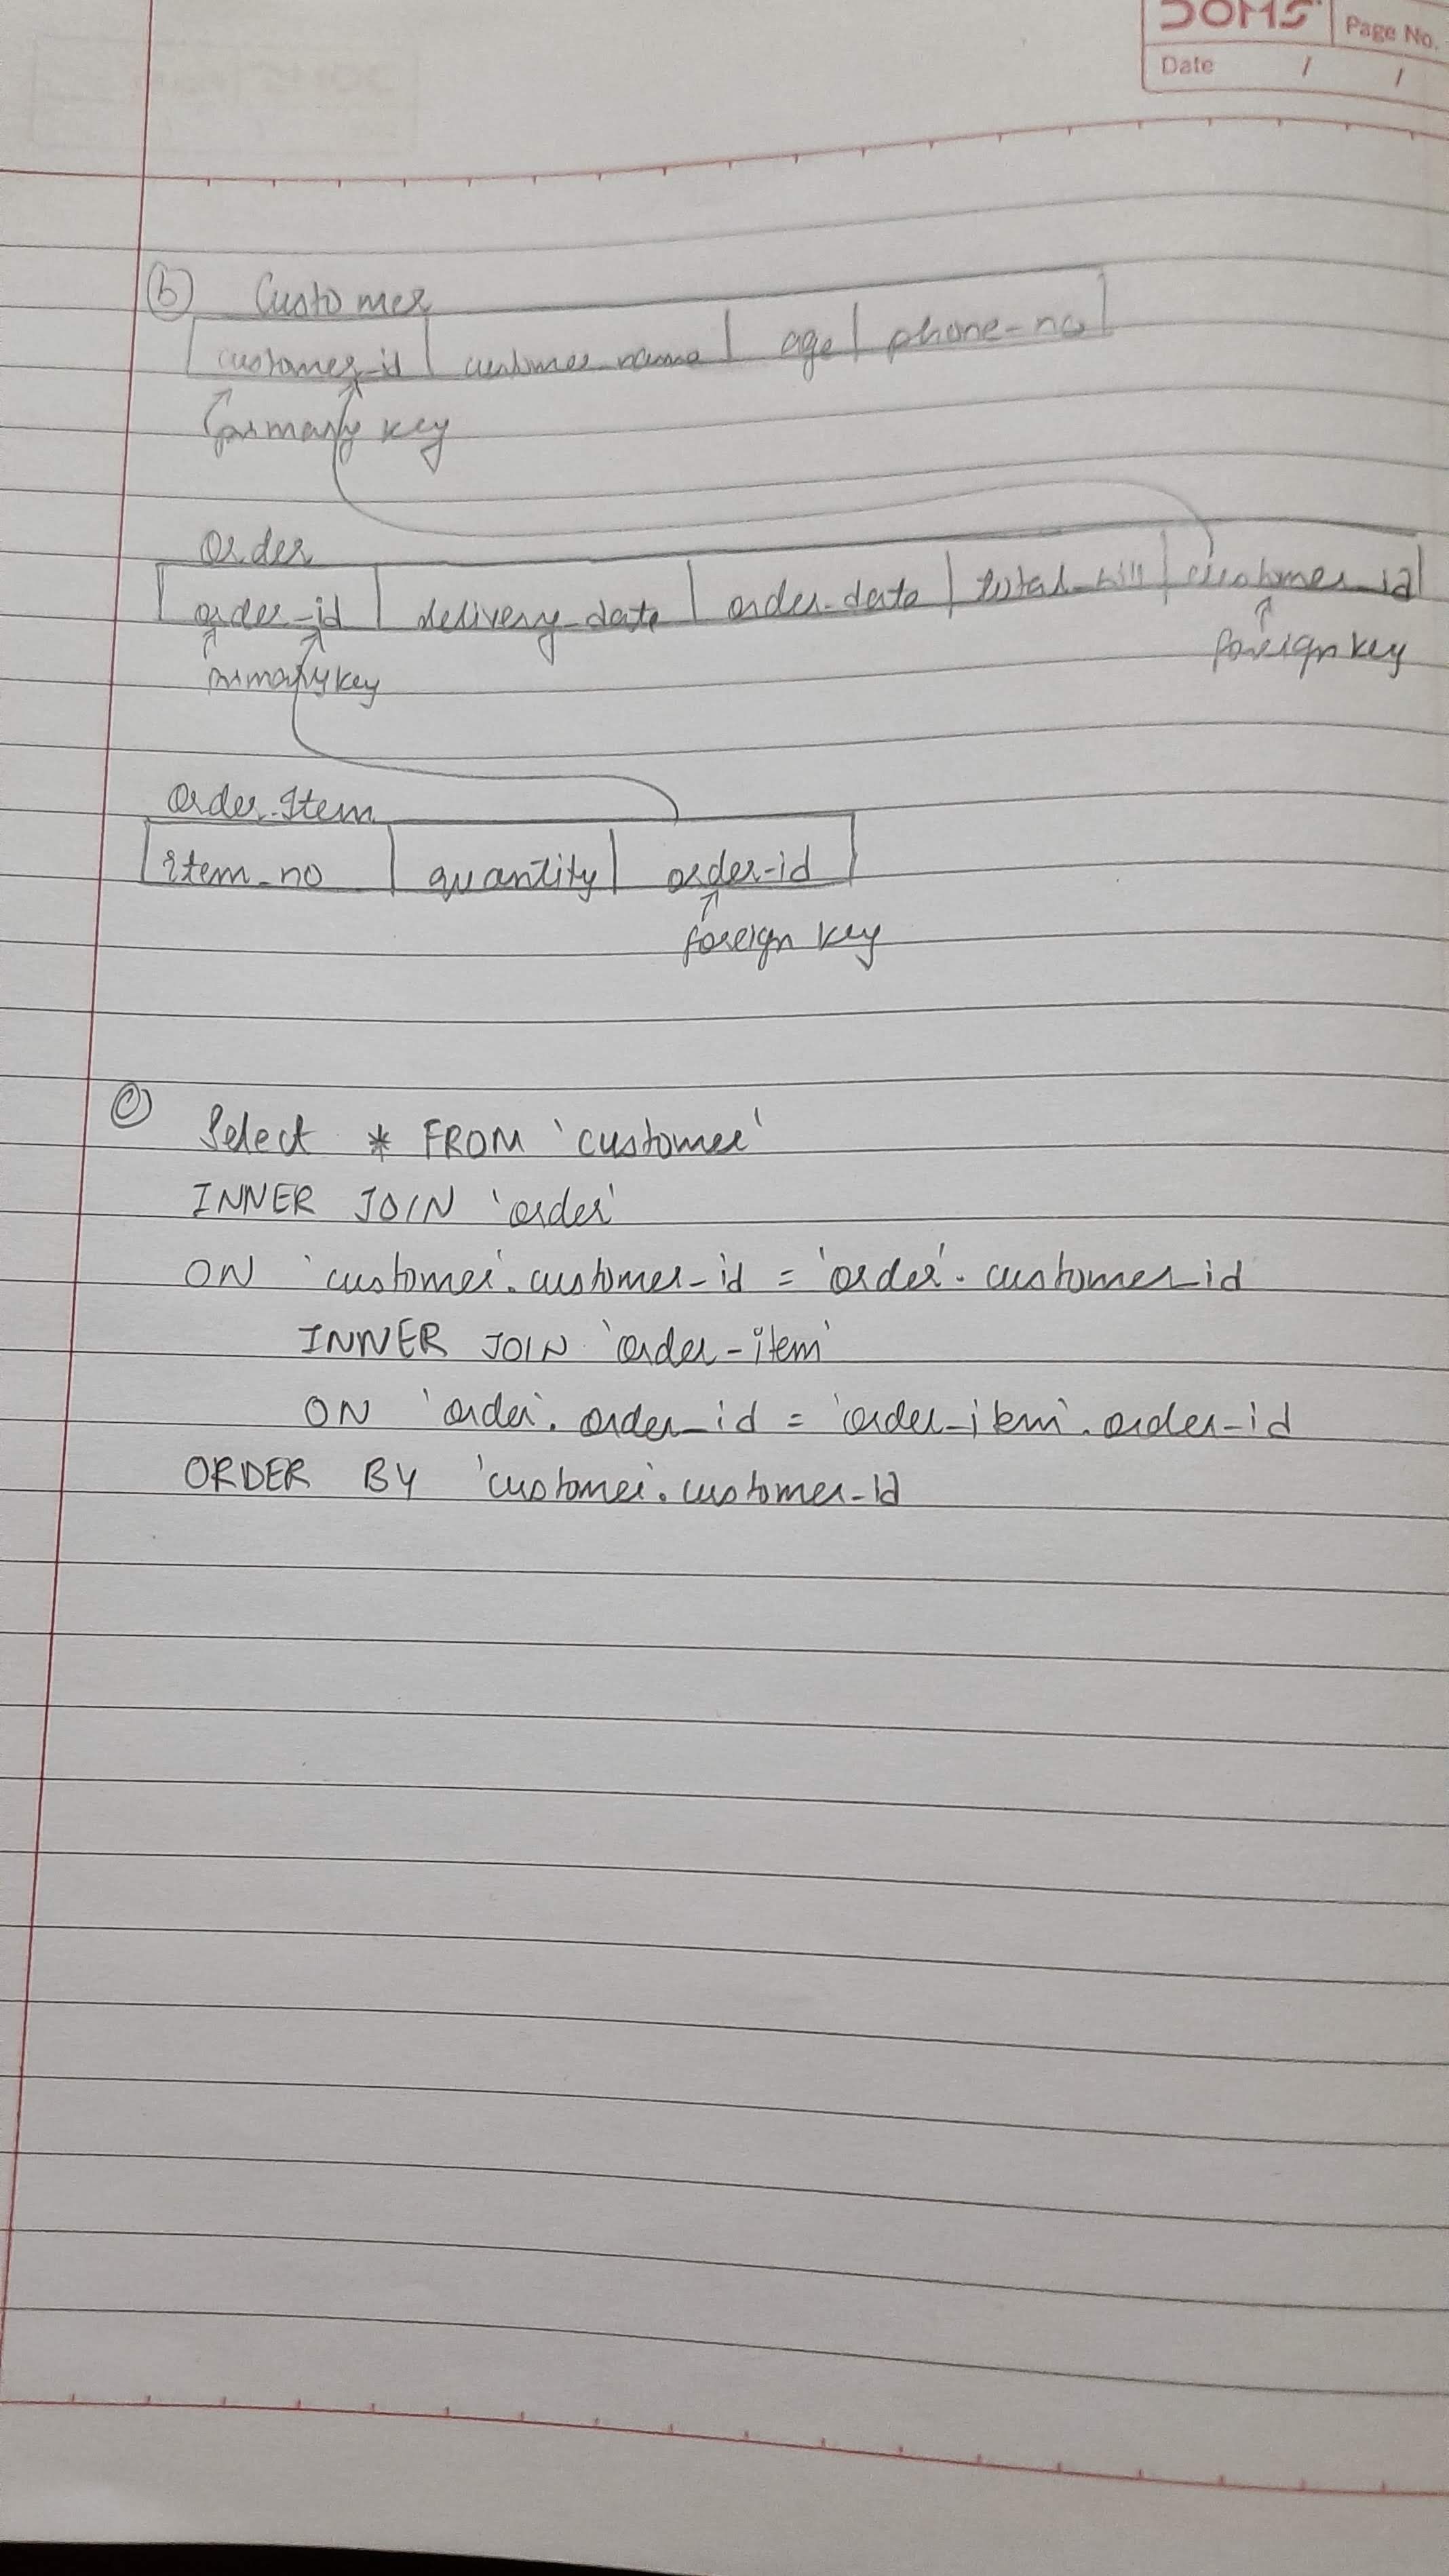 DOMS Page No.
Date / /
(b) Customer
customer_id customer_name age phone-no
primary key
Order
order-id delivery_date order-date total_bill customer_id
primary key foreign key
Order-Item
item-no quantity order-id
foreign key
(c) Select * FROM `customer`
INNER JOIN `order`
ON `customer`.customer-id = `order`.customer_id
INNER JOIN `order-item`
ON `order`.order_id = `order_item`.order-id
ORDER BY `customer`.customer-id